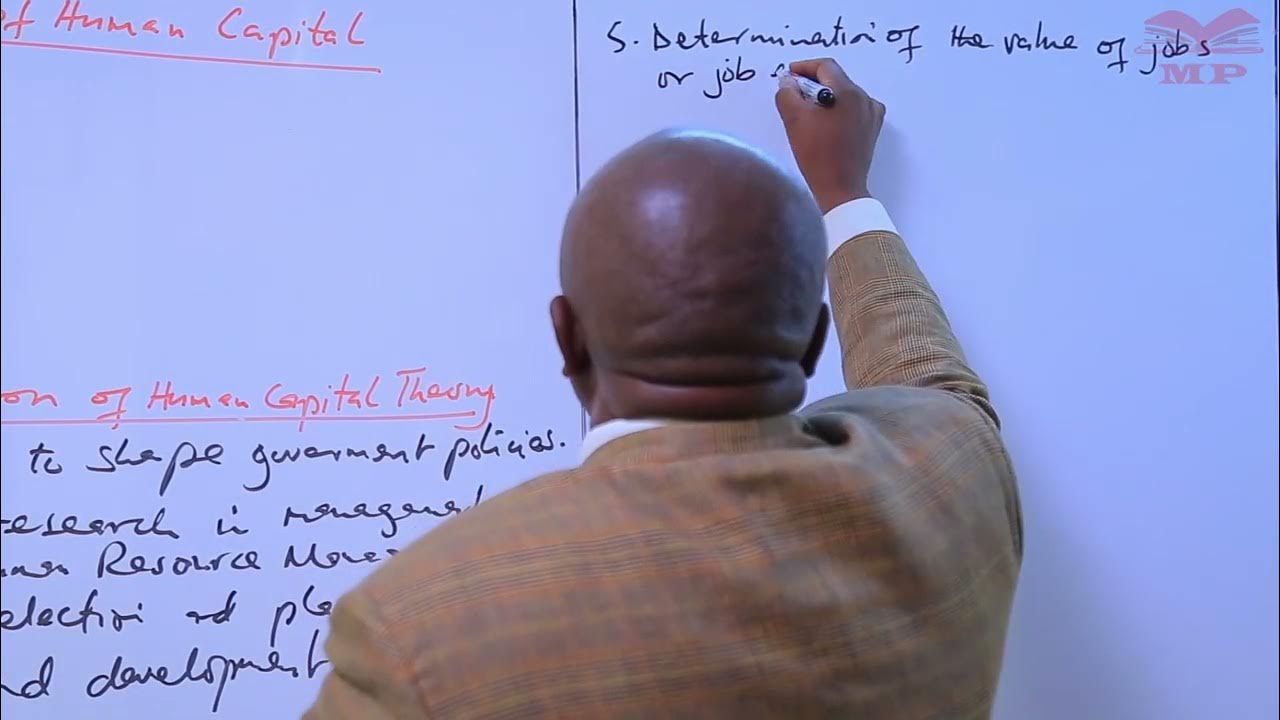 of Human Capital
on of Human Capital Theory
to shape goverment policies.
research in managem
Resource Mana
election ad pla
nd development
5. Determination of the value of jobs
or job
MP